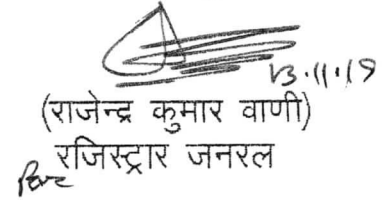 13.11.19
(राजेन्द्र कुमार वाणी)
रजिस्ट्रार जनरल